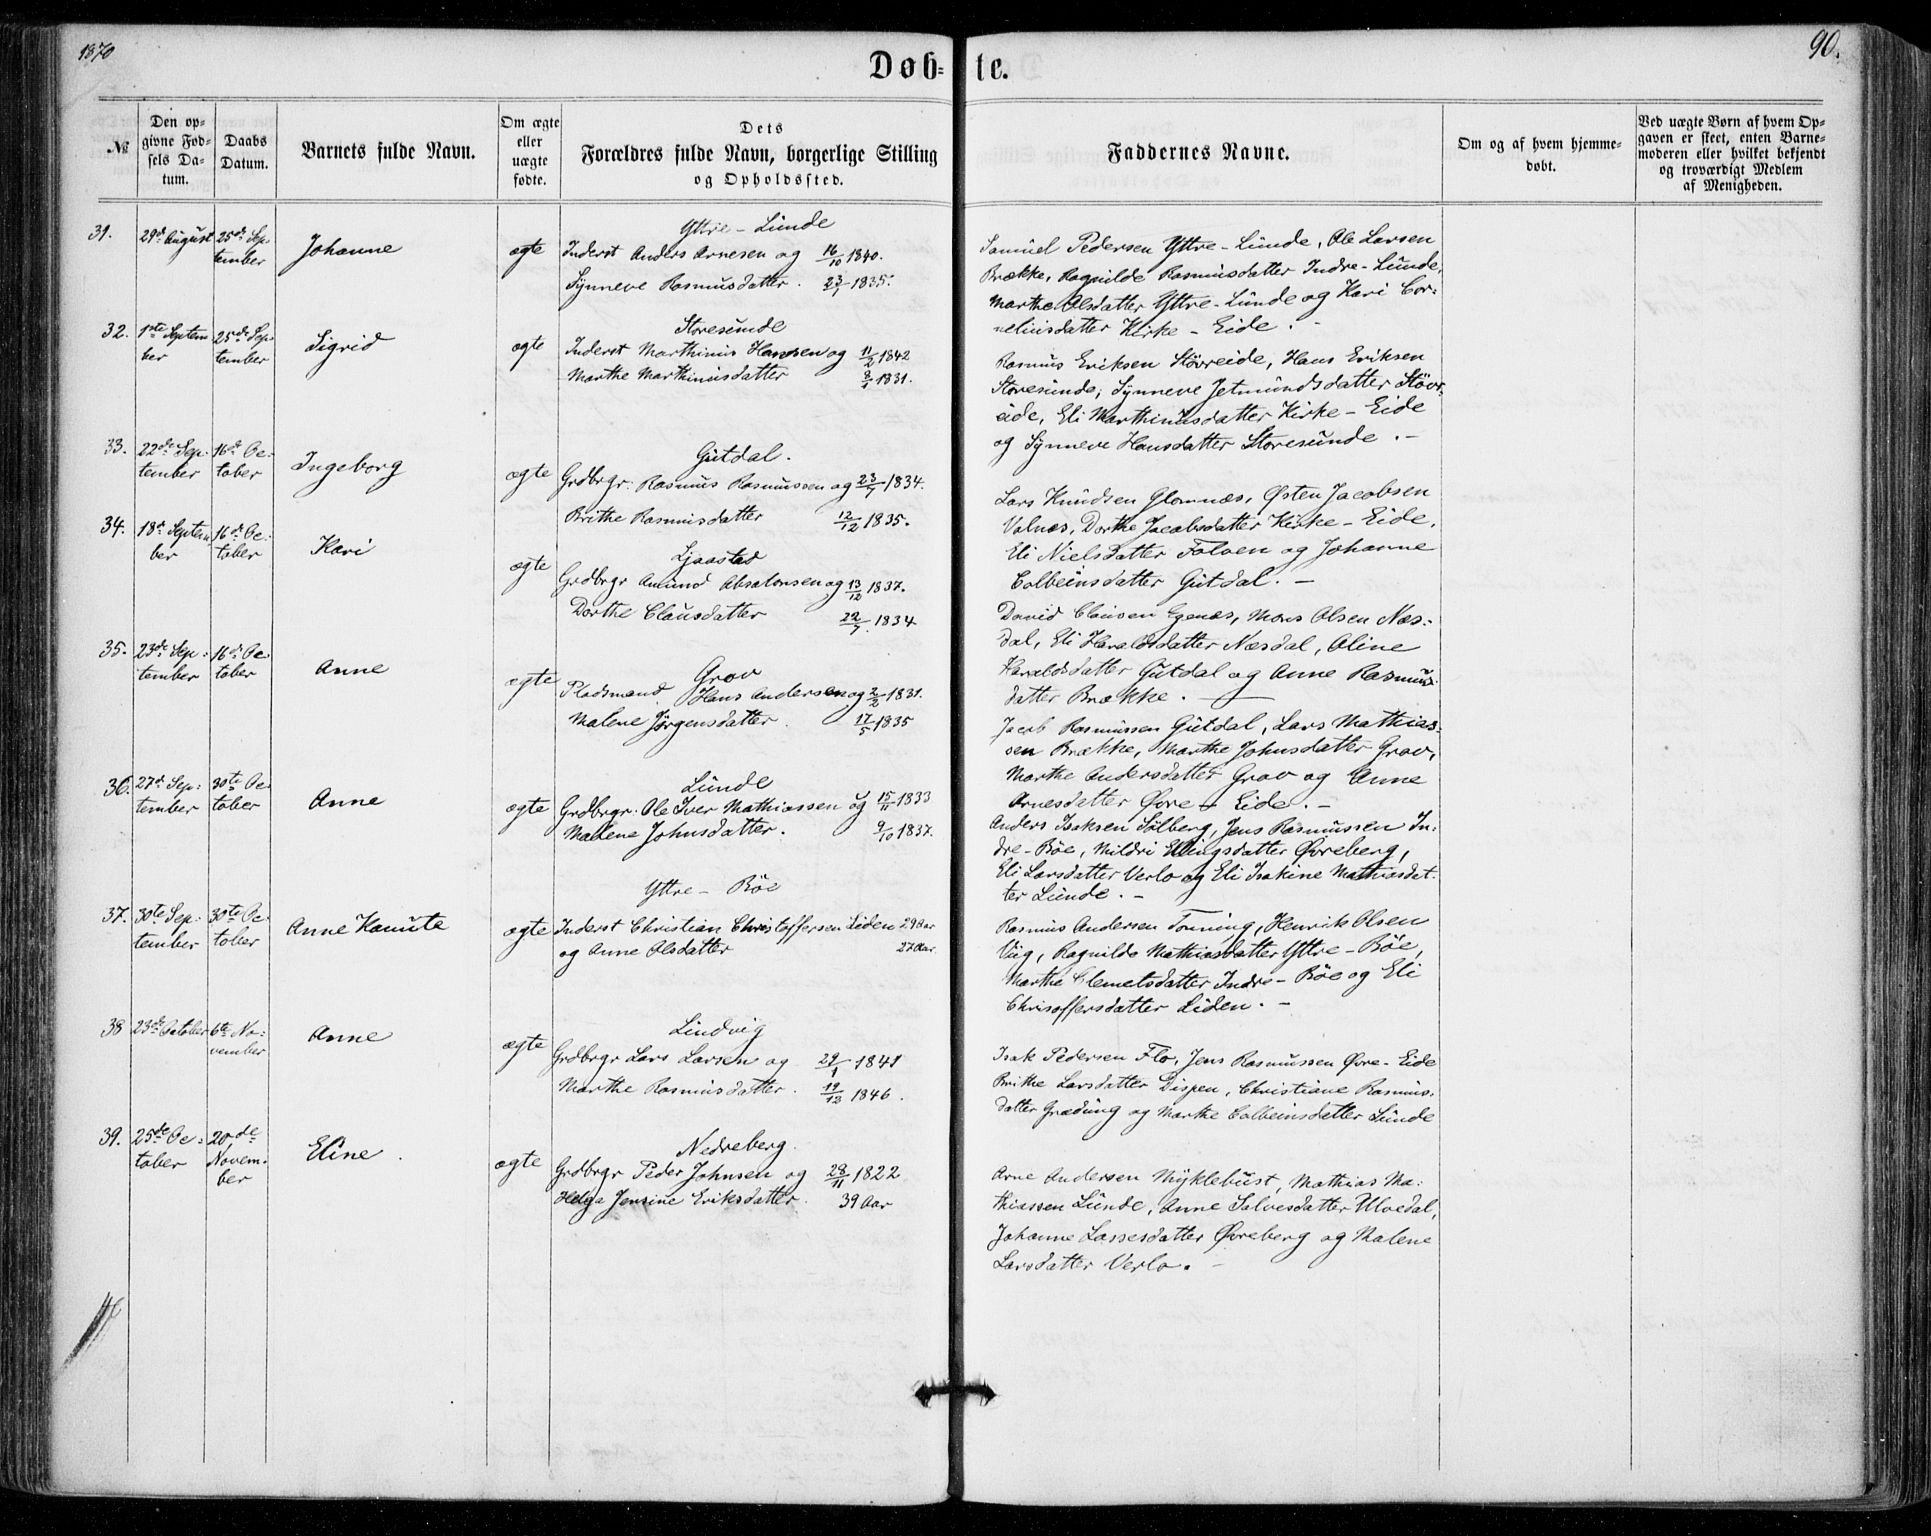 1870
90.
Døb-
te.
№
Den op-
givne Fød-
sels Da-
tum.
Daabs
Datum.
Barnets fulde Navn.
Om ægte
eller
uægte
fødte.
Dets
Forældres fulde Navn, borgerlige Stilling
og Opholdssted.
Faddernes Navne.
Om og af hvem hjemme-
døbt.
Ved uægte Børn af hvem Op-
gaven er skeet, enten Barne-
moderen eller hvilket bekjendt
og troværdigt Medlem
af Menigheden.
31. 29de August 25de Sep-
tember
Johanne
ægte
Yttre - Lunde
Inderst Anders Arnesen og 16/10 1840.
Synneve Rasmusdatter. 23/1 1835.
Samuel Pedersen Yttre - Lunde, Ole Larsen
Brække, Ragnilde Rasmusdatter Indre - Lunde,
Marthe Olsdatter Yttre - Lunde og Kari Cor-
neliusdatter Kirke - Eide. -
32. 1ste Septem- 25de Sep-
ber tember
Sigrid
ægte
Storesunde
Inderst Marthinus Hansen og 11/2 1842
Marthe Marthinusdatter 8/1 1831.
Rasmus Eriksen Støvreide, Hans Eriksen
Storesunde, Synneve Jetmundsdatter Støvr-
eide, Eli Marthinusdatter Kirke - Eide
og Synneve Hansdatter Storesunde. -
33. 22de Sep- 16de Oc-
tember tober
Ingeborg
ægte
Gutdal.
Grdbrgr. Rasmus Rasmussen og 23/7 1834.
Brithe Rasmusdatter 12/12 1835.
Lars Knudsen Glomnæs, Østen Jacobsen
Valnæs, Dorthe Jacobsdatter Kirke - Eide,
Eli Nielsdatter Folven og Johanne
Colbeinsdatter Gutdal. -
34. 18de Septem- 16de Oc-
ber tober
Kari
ægte
Ljaastad
Grdbrgr Amund Absalonsen og 13/12 1837.
Dorthe Clausdatter 22/7 1834
David Clausen Egenæs, Mons Olsen Næs-
dal, Eli Haraldsdatter Næsdal, Oline
Haraldsdatter Gutdal og Anne Rasmus-
datter Brække. -
35. 23de Sep- 16de Oc
tember tober
Anne
ægte
Grov
Pladsmand Hans Andersen og 2/2 1831.
Malene Jørgensdatter. 17/5 1835
Jacob Rasmussen Gutdal, Lars Mathias-
sen Brække, Marthe Johnsdatter Grov,
Marthe Andersdatter Grov og Anne
Arnesdatter Øvre - Eide. -
36. 27de Sep- 30te Oc
tember tober
Anne
ægte
Lunde
Grdbrgr. Ole Iver Mathiassen og 15/11 1833
Malene Johnsdatter. 9/10 1837.
Anders Isaksen Sølberg, Jens Rasmussen In-
dre - Böe, Mildri Ellingsdatter Øvreberg,
Eli Larsdatter Verlo og Eli Isakine Mathiasdat-
ter Lunde. -
37. 30te Sep- 30te Oc-
tember tober
Anne Kanute
ægte
Yttre - Böe
Inderst Christian Christoffersen Liden 29 Aar
og Anne Olsdatter 27 Aar.
Rasmus Andersen Tonning, Henrik Olsen
Viig, Ragnilde Mathiasdatter Yttre - Böe,
Marthe Clemetsdatter Indre - Böe og Eli
Chrisoffersdatter Liden. -
38 23de October 6te No-
vember
Anne
ægte
Lindvig
Grdbrgr Lars Larsen og 29/1 1841
Marthe Rasmusdatter. 19/12 1846.
Isak Pedersen Flo, Jens Rasmussen Øvre - Eide
Brithe Larsdatter Dispen, Christiane Rasmus-
datter Græding og Marthe Colbeinsdatter Lunde
39. 25de Oc- 20de
tober Novem-
ber
Eline
ægte
Nedreberg.
Grdbrgr Peder Johnsen og 28/11 1822
Helga Jensine Eriksdatter. 39 Aar
Arne Andersen Myklebust, Mathias Ma-
thiassen Lunde, Anne Salvesdatter Ulvedal,
Johanne Lassesdatter Øvreberg og Malene
Larsdatter Verlo. -